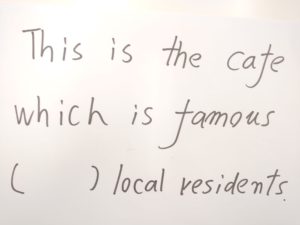 This is the cafe
which is famous
(     ) local residents.